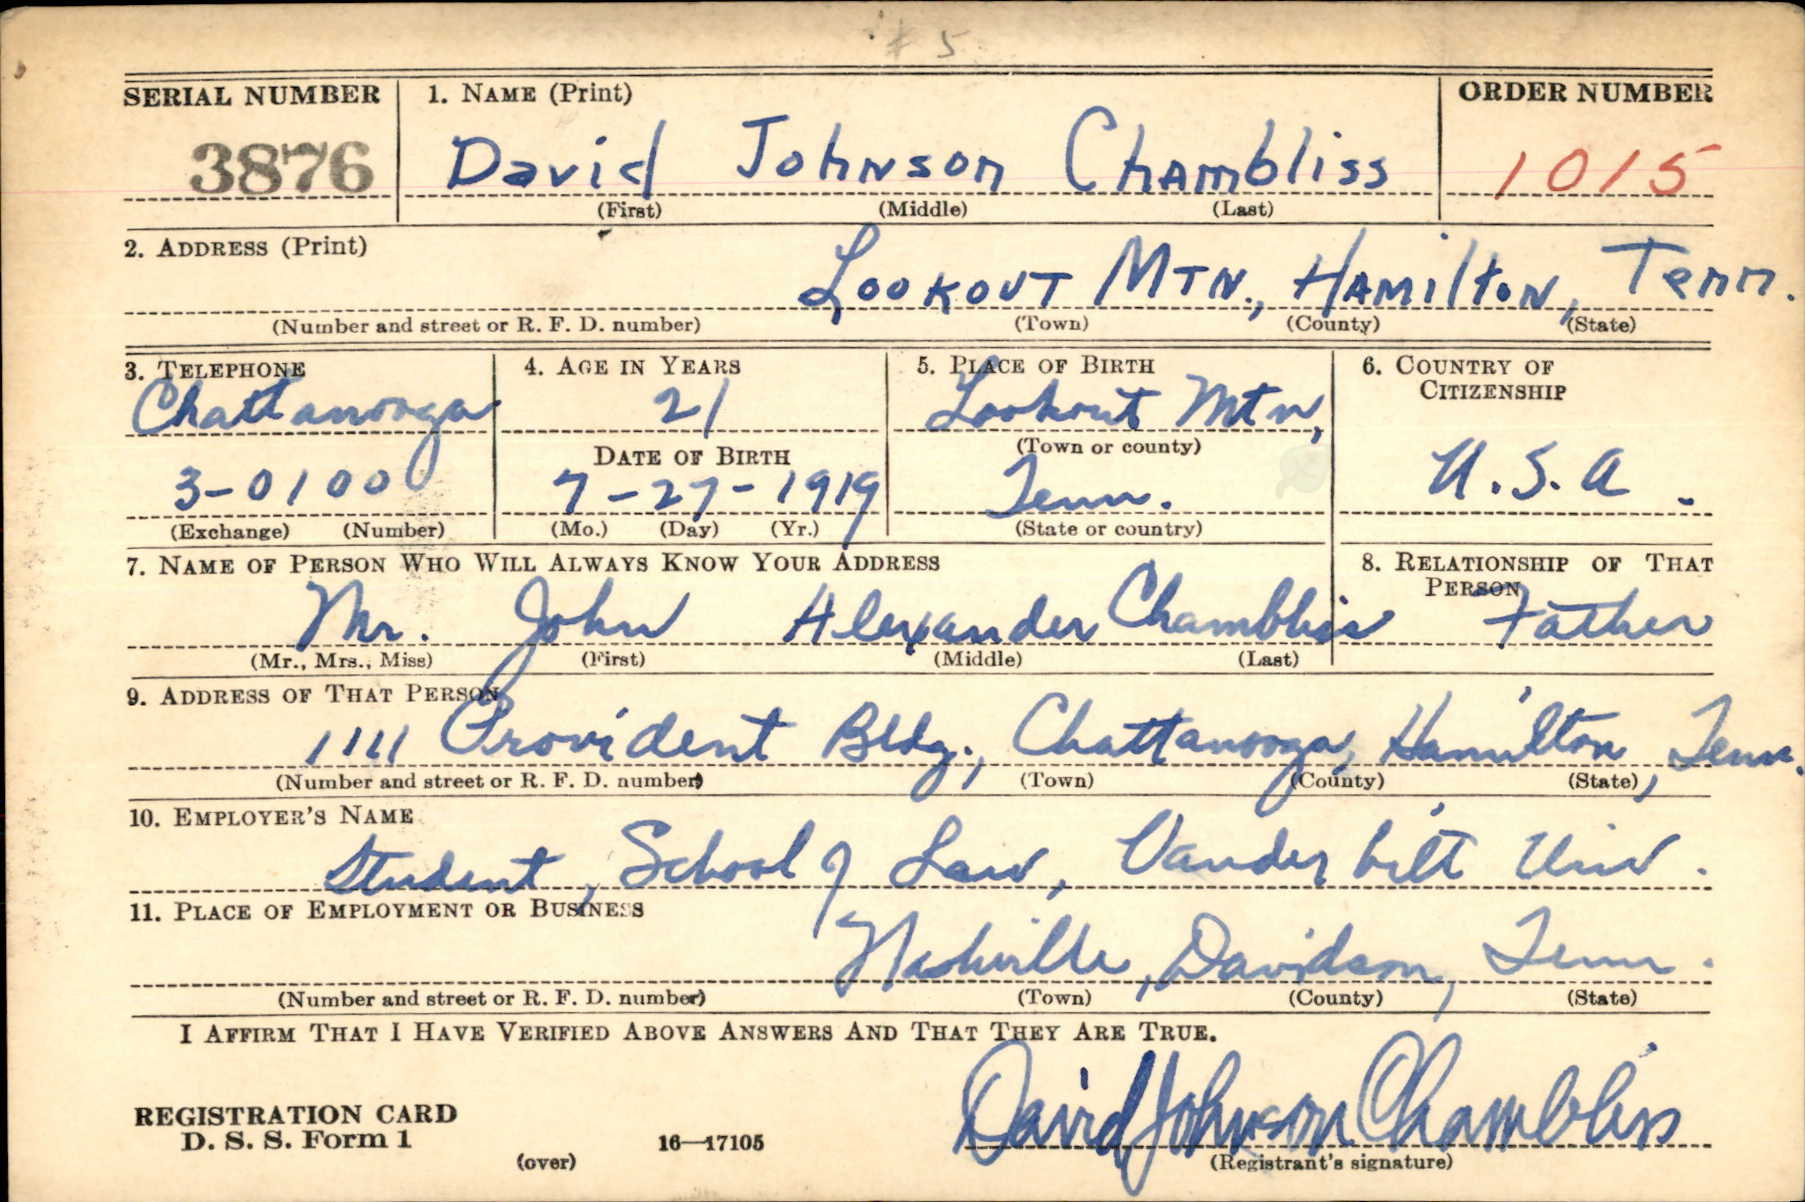 # 5
SERIAL NUMBER 1. NAME (Print) ORDER NUMBER
3876 David Johnson Chambliss 1015
(First) (Middle) (Last)
2. ADDRESS (Print)
Lookout Mtn., Hamilton, Tenn.
(Number and street or R. F. D. number) (Town) (County) (State)
3. TELEPHONE 4. AGE IN YEARS 5. PLACE OF BIRTH 6. COUNTRY OF CITIZENSHIP
Chattanooga 21 Lookout Mtn,
DATE OF BIRTH (Town or county)
3-0100 7-27-1919 Tenn. U.S.A.
(Exchange) (Number) (Mo.) (Day) (Yr.) (State or country)
7. NAME OF PERSON WHO WILL ALWAYS KNOW YOUR ADDRESS 8. RELATIONSHIP OF THAT PERSON
Mr. John Alexander Chambliss Father
(Mr., Mrs., Miss) (First) (Middle) (Last)
9. ADDRESS OF THAT PERSON
1111 Provident Bldg., Chattanooga, Hamilton, Tenn.
(Number and street or R. F. D. number) (Town) (County) (State)
10. EMPLOYER'S NAME
Student, School of Law, Vanderbilt Univ.
11. PLACE OF EMPLOYMENT OR BUSINESS
Nashville, Davidson, Tenn.
(Number and street or R. F. D. number) (Town) (County) (State)
I AFFIRM THAT I HAVE VERIFIED ABOVE ANSWERS AND THAT THEY ARE TRUE.
David Johnson Chambliss
REGISTRATION CARD
D. S. S. Form 1 16—17105
(over) (Registrant's signature)